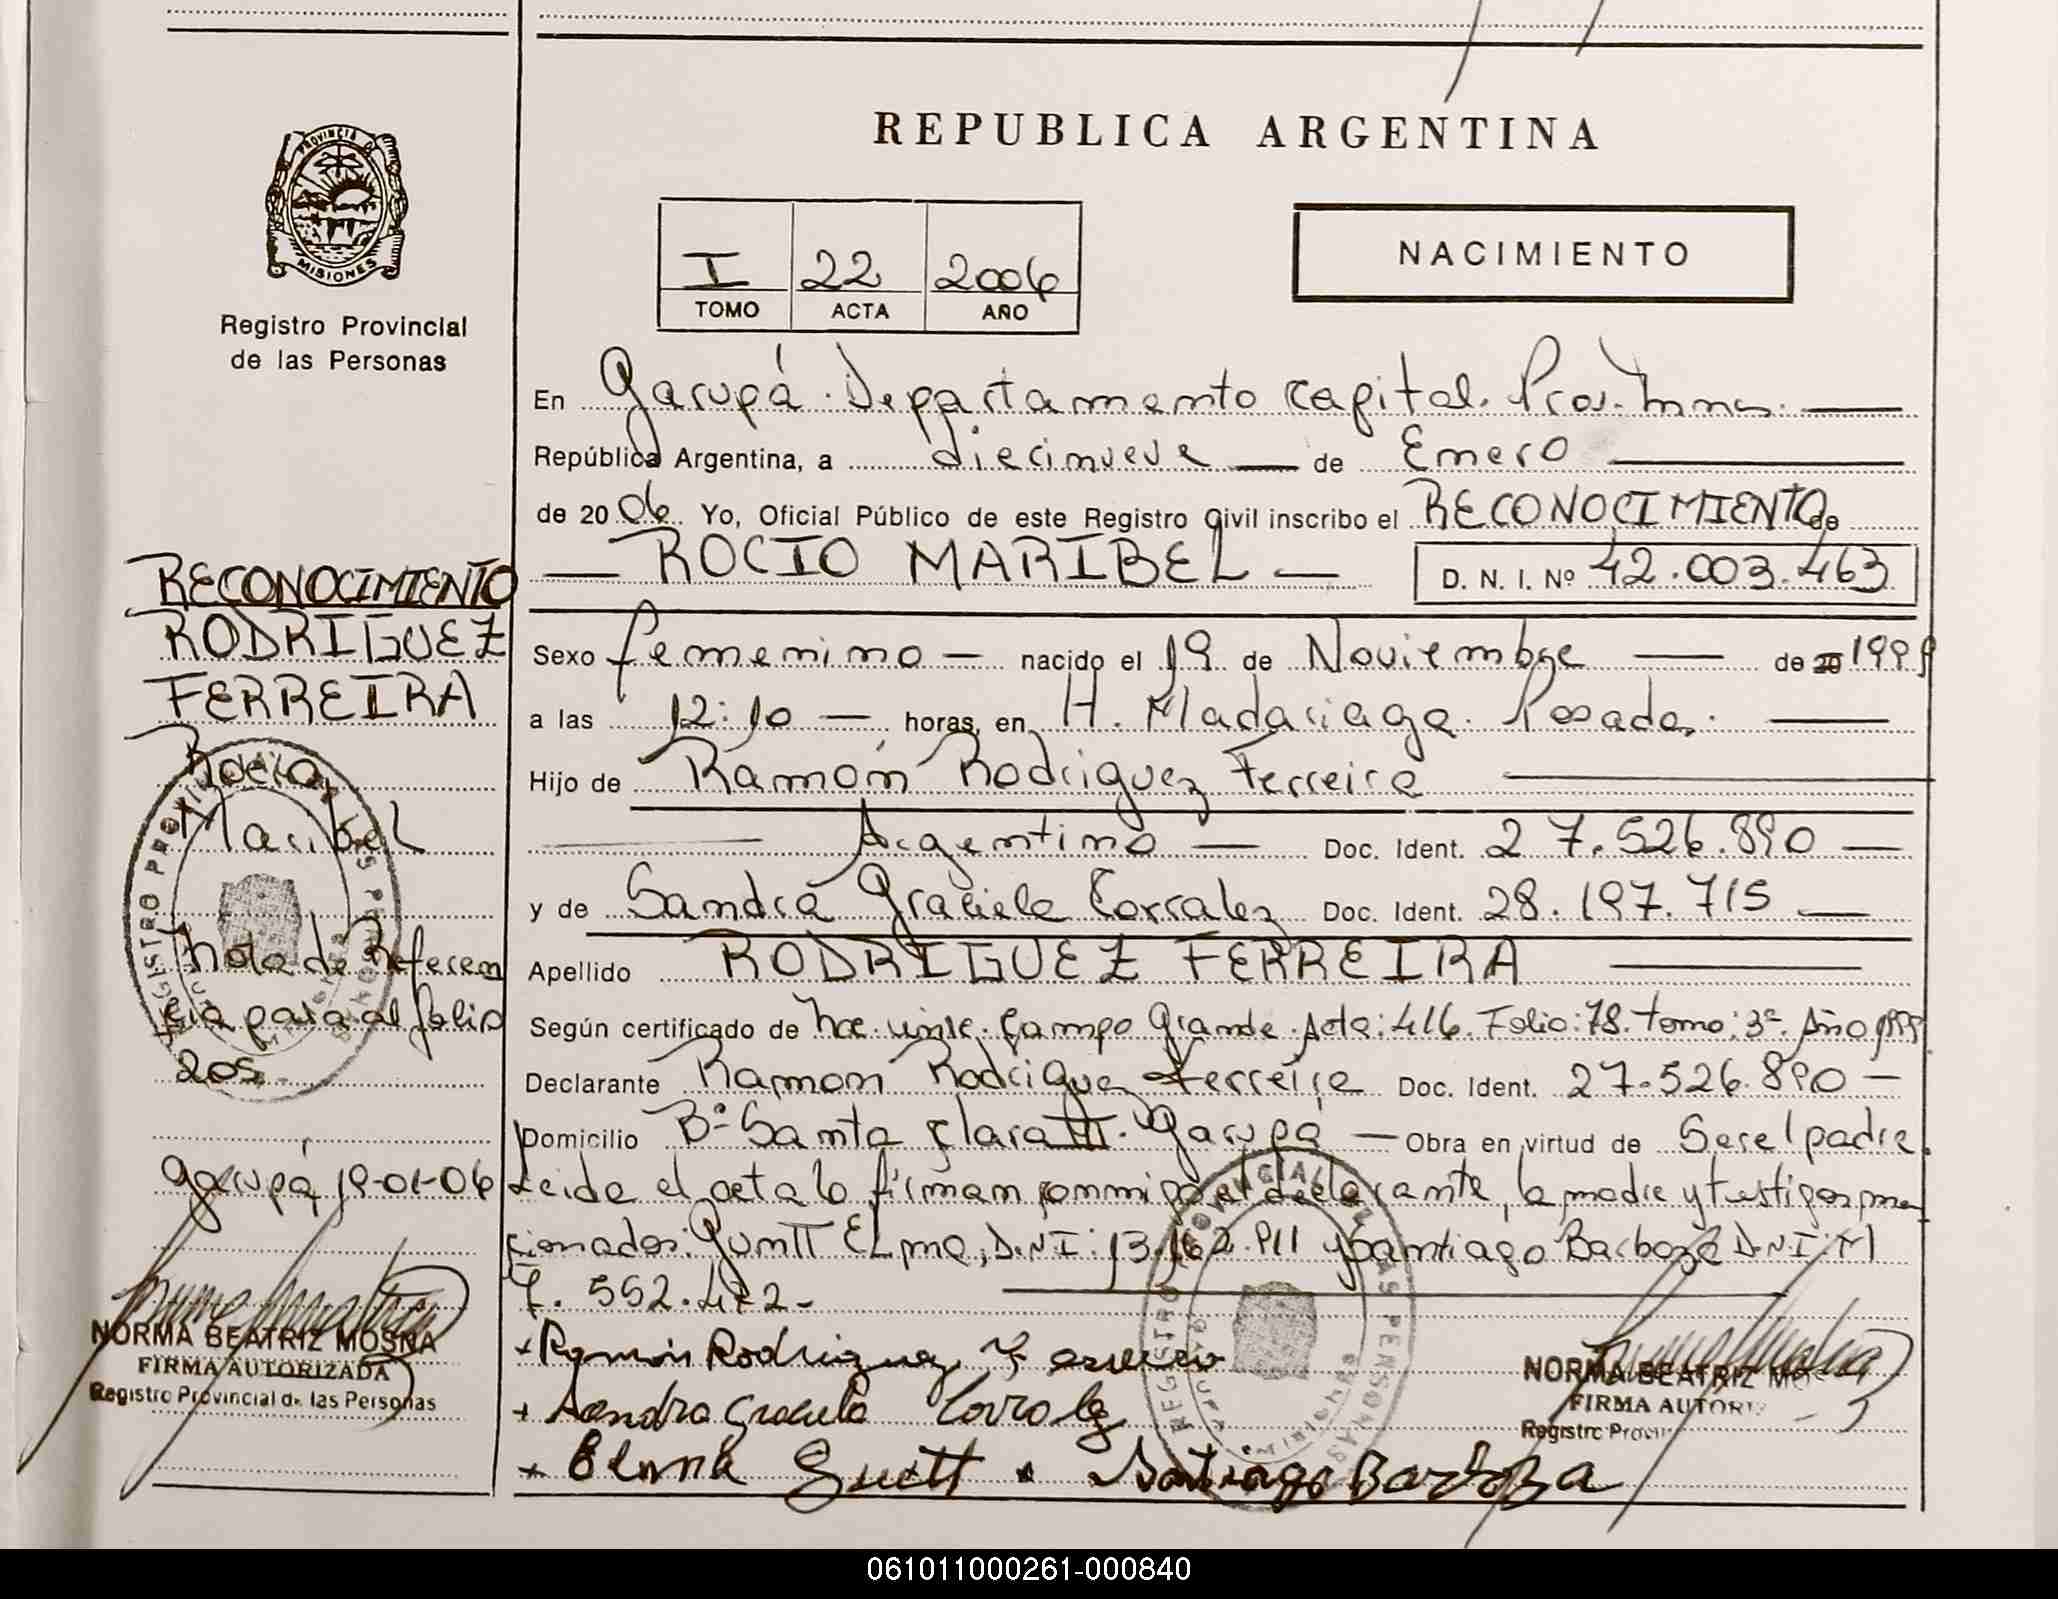 REPUBLICA ARGENTINA
PROVINCIA D
MISIONES
Registro Provincial
de las Personas
I 22 2006
TOMO ACTA AÑO
NACIMIENTO
En Garupá. Departamento Capital. Prov. Mnes.
República Argentina, a diecinueve de Enero
de 2006 Yo, Oficial Público de este Registro Civil inscribo el RECONOCIMIENTO de
ROCIO MARIBEL D. N. I. Nº 42.003.463
Sexo femenino nacido el 19 de Noviembre de 20 1999
a las 12:10 horas, en H. Madariaga. Posadas.
Hijo de Ramón Rodriguez Ferreira
Argentino Doc. Ident. 27.526.890
y de Sandra Graciela Corralez Doc. Ident. 28.197.715
Apellido RODRIGUEZ FERREIRA
Según certificado de Campo Grande. Acta: 416. Folio: 78. Tomo: 3º. Año 1999
Declarante Ramon Rodriguez Ferreira Doc. Ident. 27.526.890
Domicilio Bº Santa Clara III. Garupá Obra en virtud de Ser el padre.
Leida el acta lo firman conmigo el declarante, la madre y testigos men
cionados: Guntt Elma, D.N.I: 13.162.911 y Santiago Barboza D.N.I: M
7.552.472-
+ Ramón Rodriguez Ferreira
+ Sandra Graciela Corralez
+ Elma Guntt + Santiago Barboza
RECONOCIMIENTO
RODRIGUEZ
FERREIRA
Rocio
Maribel
Nota de Referen
cia para al folio
205
Garupá 19-01-06
NORMA BEATRIZ MOSNA
FIRMA AUTORIZADA
Registro Provincial de las Personas
NORMA BEATRIZ MO
FIRMA AUTORI
Registro Provin
REGISTRO PROVINCIAL DE LAS PERSONAS
REGISTRO PROVINCIAL DE LAS PERSONAS
061011000261-000840